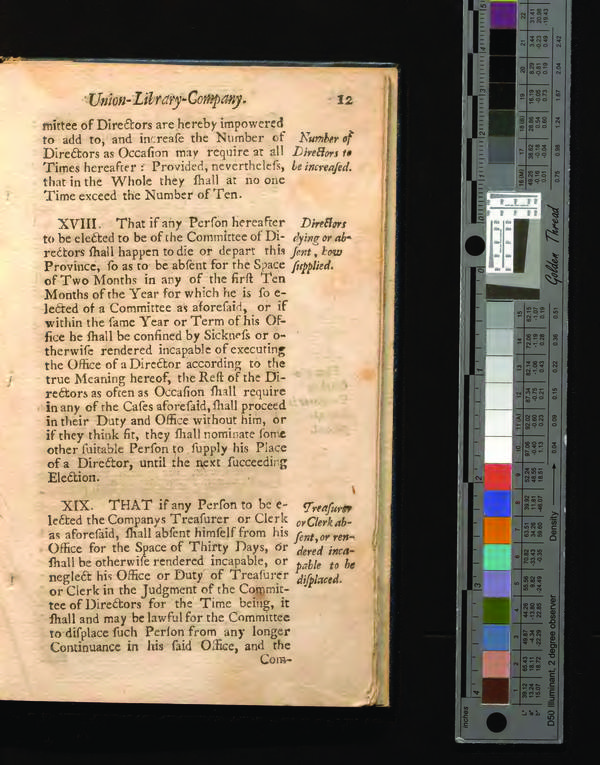 Union-Library-Company. 12
mittee of Directors are hereby impowered
to add to, and increaſe the Number of
Directors as Occaſion may require at all
Times hereafter : Provided, nevertheleſs,
that in the Whole they ſhall at no one
Time exceed the Number of Ten.
Number of
Directors to
be increaſed.
XVIII. That if any Perſon hereafter
to be elected to be of the Committee of Di-
rectors ſhall happen to die or depart this
Province, ſo as to be abſent for the Space
of Two Months in any of the firſt Ten
Months of the Year for which he is ſo e-
lected of a Committee as aforeſaid, or if
within the ſame Year or Term of his Of-
fice he ſhall be confined by Sickneſs or o-
therwiſe rendered incapable of executing
the Office of a Director according to the
true Meaning hereof, the Reſt of the Di-
rectors as often as Occaſion ſhall require
in any of the Caſes aforeſaid, ſhall proceed
in their Duty and Office without him, or
if they think fit, they ſhall nominate ſome
other ſuitable Perſon to ſupply his Place
of a Director, until the next ſucceeding
Election.
Directors
dying or ab-
ſent, how
ſupplied.
XIX. THAT if any Perſon to be e-
lected the Companys Treaſurer or Clerk
as aforeſaid, ſhall abſent himſelf from his
Office for the Space of Thirty Days, or
ſhall be otherwiſe rendered incapable, or
neglect his Office or Duty of Treaſurer
or Clerk in the Judgment of the Commit-
tee of Directors for the Time being, it
ſhall and may be lawful for the Committee
to diſplace ſuch Perſon from any longer
Continuance in his ſaid Office, and the
Com-
Treaſurer
or Clerk ab-
ſent, or ren-
dered inca-
pable to be
diſplaced.
Golden Thread
Density
D50 Illuminant, 2 degree observer
inches